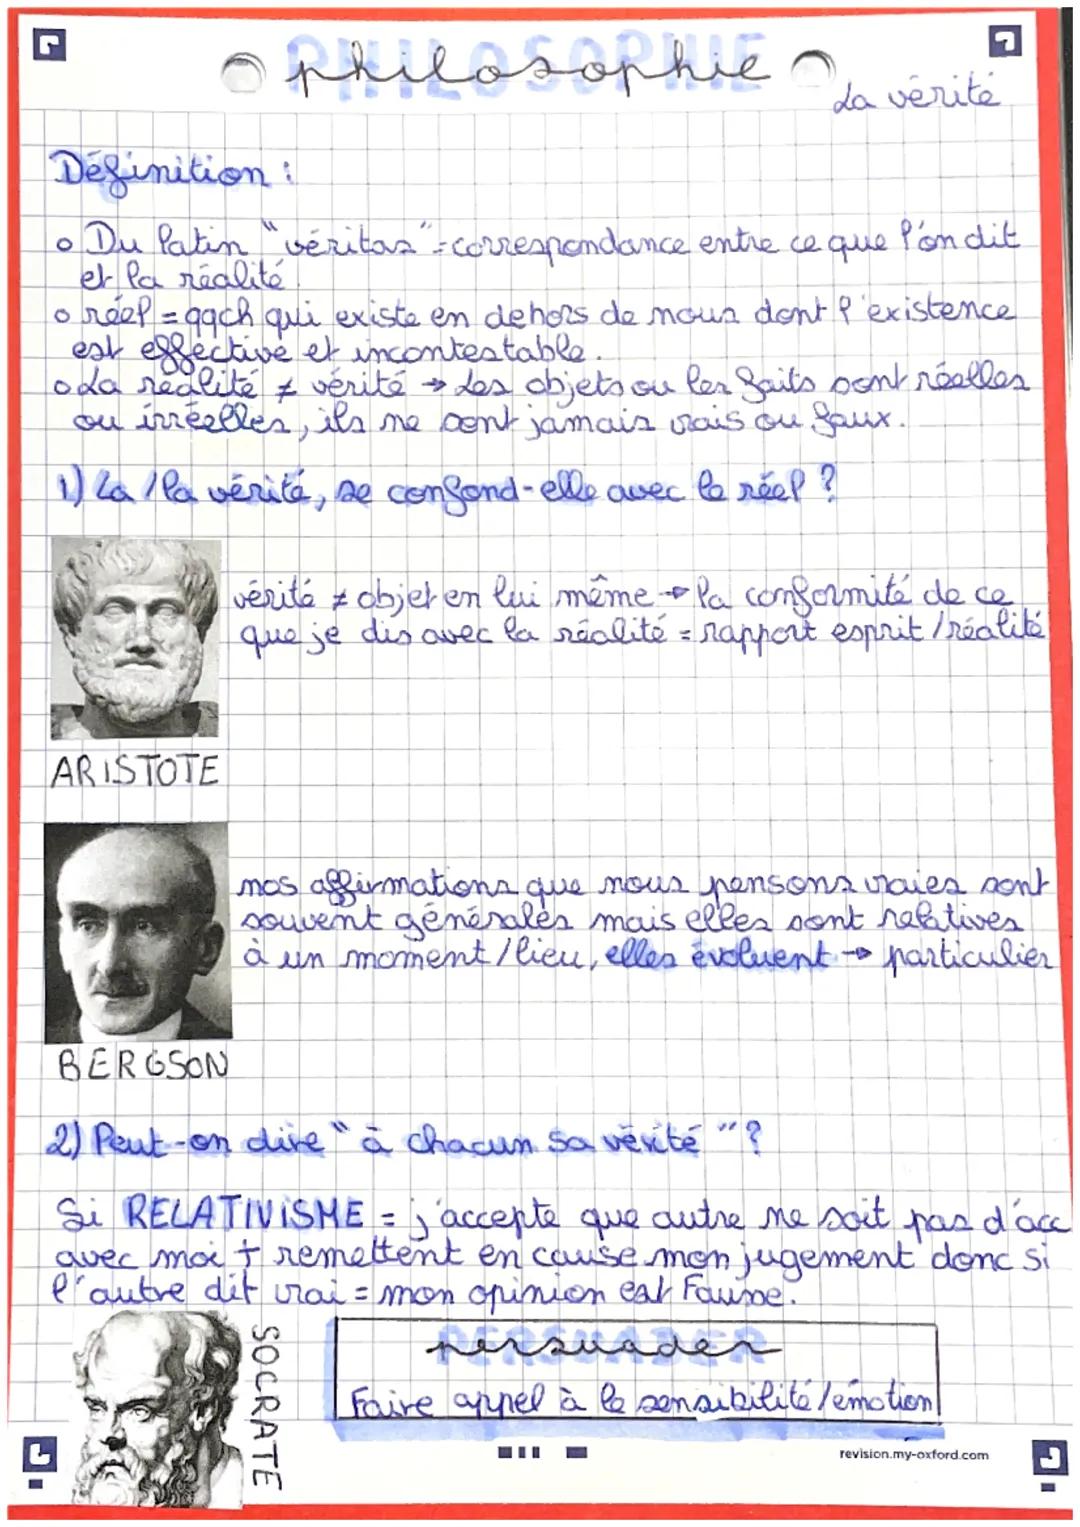 PHILOSOPHIE
philosophie
La vérité
Définition :
o Du latin "véritas" = correspondance entre ce que l'on dit
et la réalité.
o réel = qqch qui existe en dehors de nous dont l'existence
est effective et incontestable.
o La réalité ≠ vérité → Les objets ou les faits sont réelles
ou irréelles, ils ne sont jamais vrais ou faux.
1) La / la vérité, se confond-elle avec le réel ?
vérité ≠ objet en lui même → la conformité de ce
que je dis avec la réalité = rapport esprit / réalité
ARISTOTE
nos affirmations que nous pensons vraies sont
souvent générales mais elles sont relatives
à un moment / lieu, elles évoluent → particulier
BERGSON
2) Peut-on dire "à chacun sa vérité" ?
Si RELATIVISME = j'accepte que autre ne soit pas d'acc
avec moi + remettent en cause mon jugement donc si
l'autre dit vrai = mon opinion est Fausse.
SOCRATE
PERSUADER
persuader
Faire appel à la sensibilité / émotion
revision.my-oxford.com